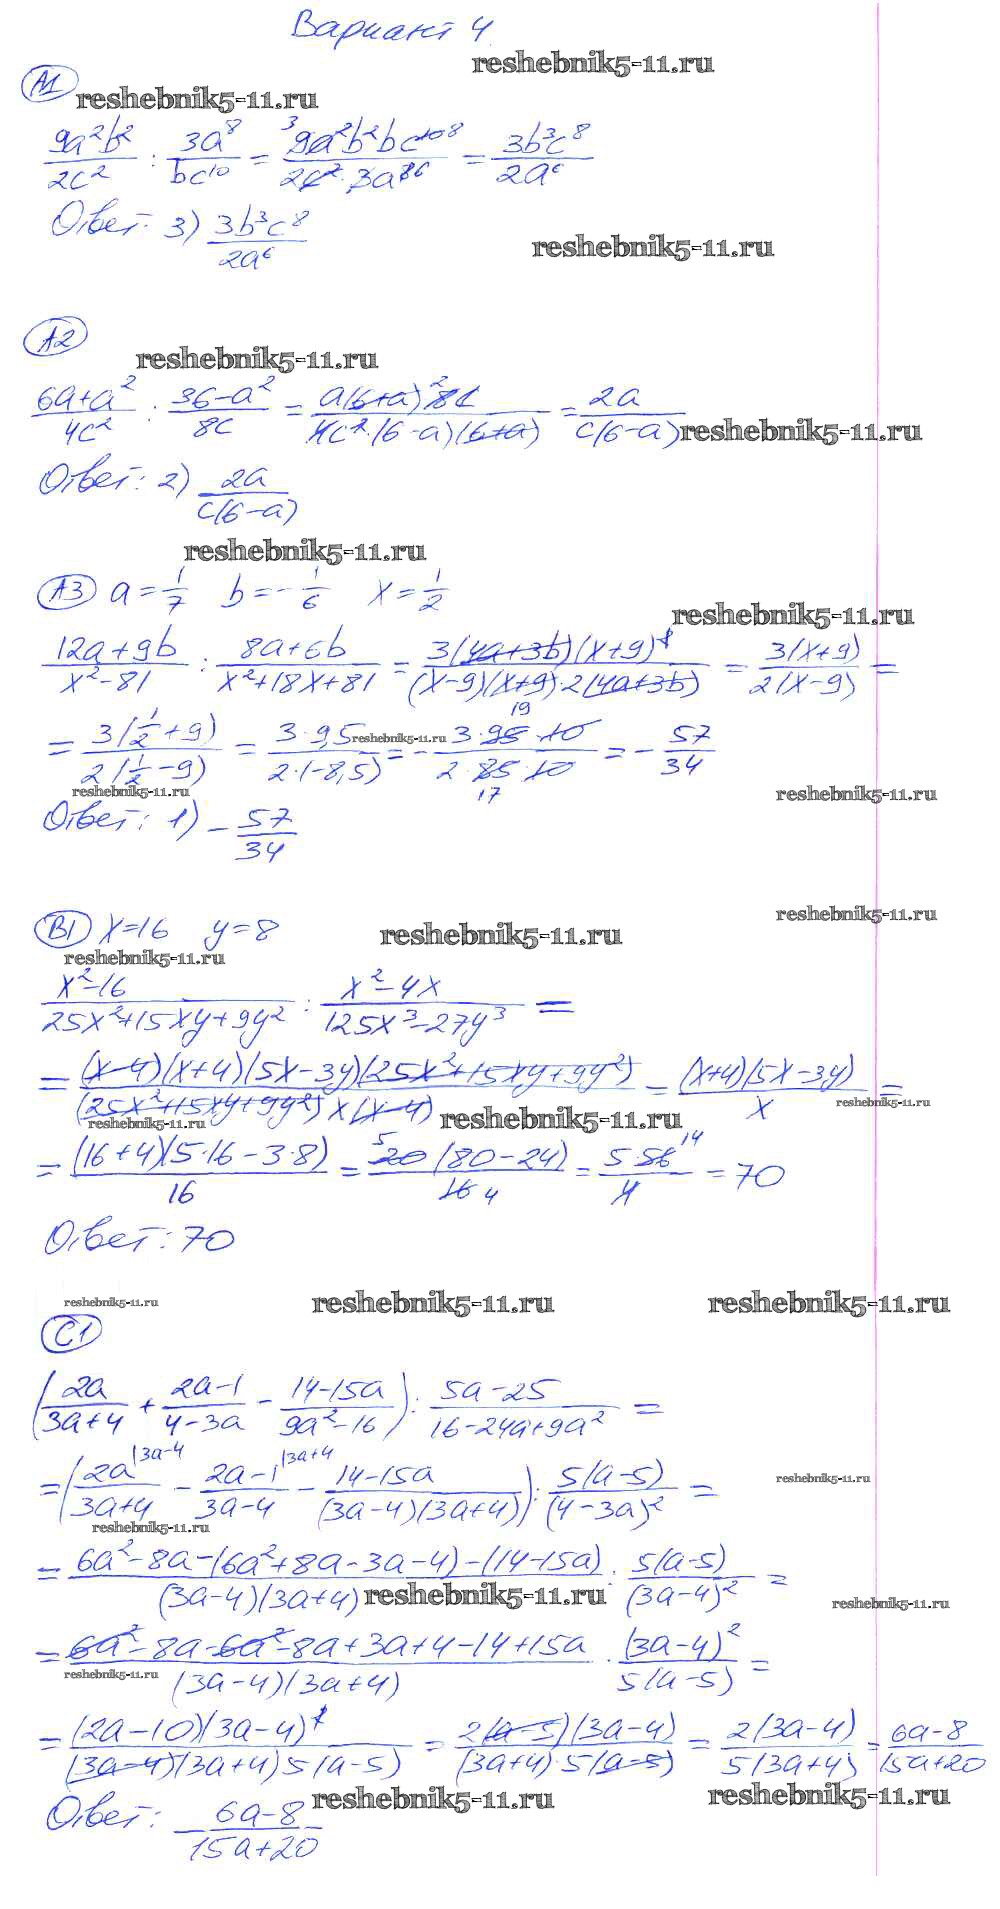 Вариант 4
reshebnik5-11.ru
А1
reshebnik5-11.ru
9a²b²/2c² : 3a⁸/bc¹⁰ = 9a²b²bc¹⁰/2c²·3a⁸ = 3b³c⁸/2a⁶
Ответ: 3) 3b³c⁸/2a⁶
reshebnik5-11.ru
А2
reshebnik5-11.ru
6a+a²/4c² : 36-a²/8c = a(6+a)8c/4c²·(6-a)(6+a) = 2a/c(6-a)
reshebnik5-11.ru
Ответ: 2) 2a/c(6-a)
reshebnik5-11.ru
А3 a=1/7 b=-1/6 x=1/2
reshebnik5-11.ru
12a+9b/x²-81 : 8a+6b/x²+18x+81 = 3(4a+3b)(x+9)²/(x-9)(x+9)·2(4a+3b) = 3(x+9)/2(x-9) =
= 3(1/2+9)/2(1/2-9) = 3·9,5/2·(-8,5) = -3·95·10/2·85·10 = -57/34
reshebnik5-11.ru
reshebnik5-11.ru
reshebnik5-11.ru
Ответ: 1) -57/34
reshebnik5-11.ru
В1 x=16 y=8
reshebnik5-11.ru
reshebnik5-11.ru
x²-16/25x²+15xy+9y² : x²-4x/125x³-27y³ =
= (x-4)(x+4)(5x-3y)(25x²+15xy+9y²)/(25x²+15xy+9y²)x(x-4) = (x+4)(5x-3y)/x =
reshebnik5-11.ru
reshebnik5-11.ru
reshebnik5-11.ru
= (16+4)(5·16-3·8)/16 = 20(80-24)/16 = 5·56/4 = 70
Ответ: 70
reshebnik5-11.ru
reshebnik5-11.ru
reshebnik5-11.ru
С1
(2a/3a+4 + 2a-1/4-3a - 14-15a/9a²-16) : 5a-25/16-24a+9a² =
= (2a/3a+4 |3a-4 - 2a-1/3a-4 |3a+4 - 14-15a/(3a-4)(3a+4)) : 5(a-5)/(4-3a)² =
reshebnik5-11.ru
reshebnik5-11.ru
= 6a²-8a-(6a²+8a-3a-4)-(14-15a)/(3a-4)(3a+4) : 5(a-5)/(3a-4)² =
reshebnik5-11.ru
reshebnik5-11.ru
= 6a²-8a-6a²-8a+3a+4-14+15a/(3a-4)(3a+4) · (3a-4)²/5(a-5) =
reshebnik5-11.ru
= (2a-10)(3a-4)²/(3a-4)(3a+4)5(a-5) = 2(a-5)(3a-4)/(3a+4)·5(a-5) = 2(3a-4)/5(3a+4) = 6a-8/15a+20
reshebnik5-11.ru
reshebnik5-11.ru
Ответ: 6a-8/15a+20